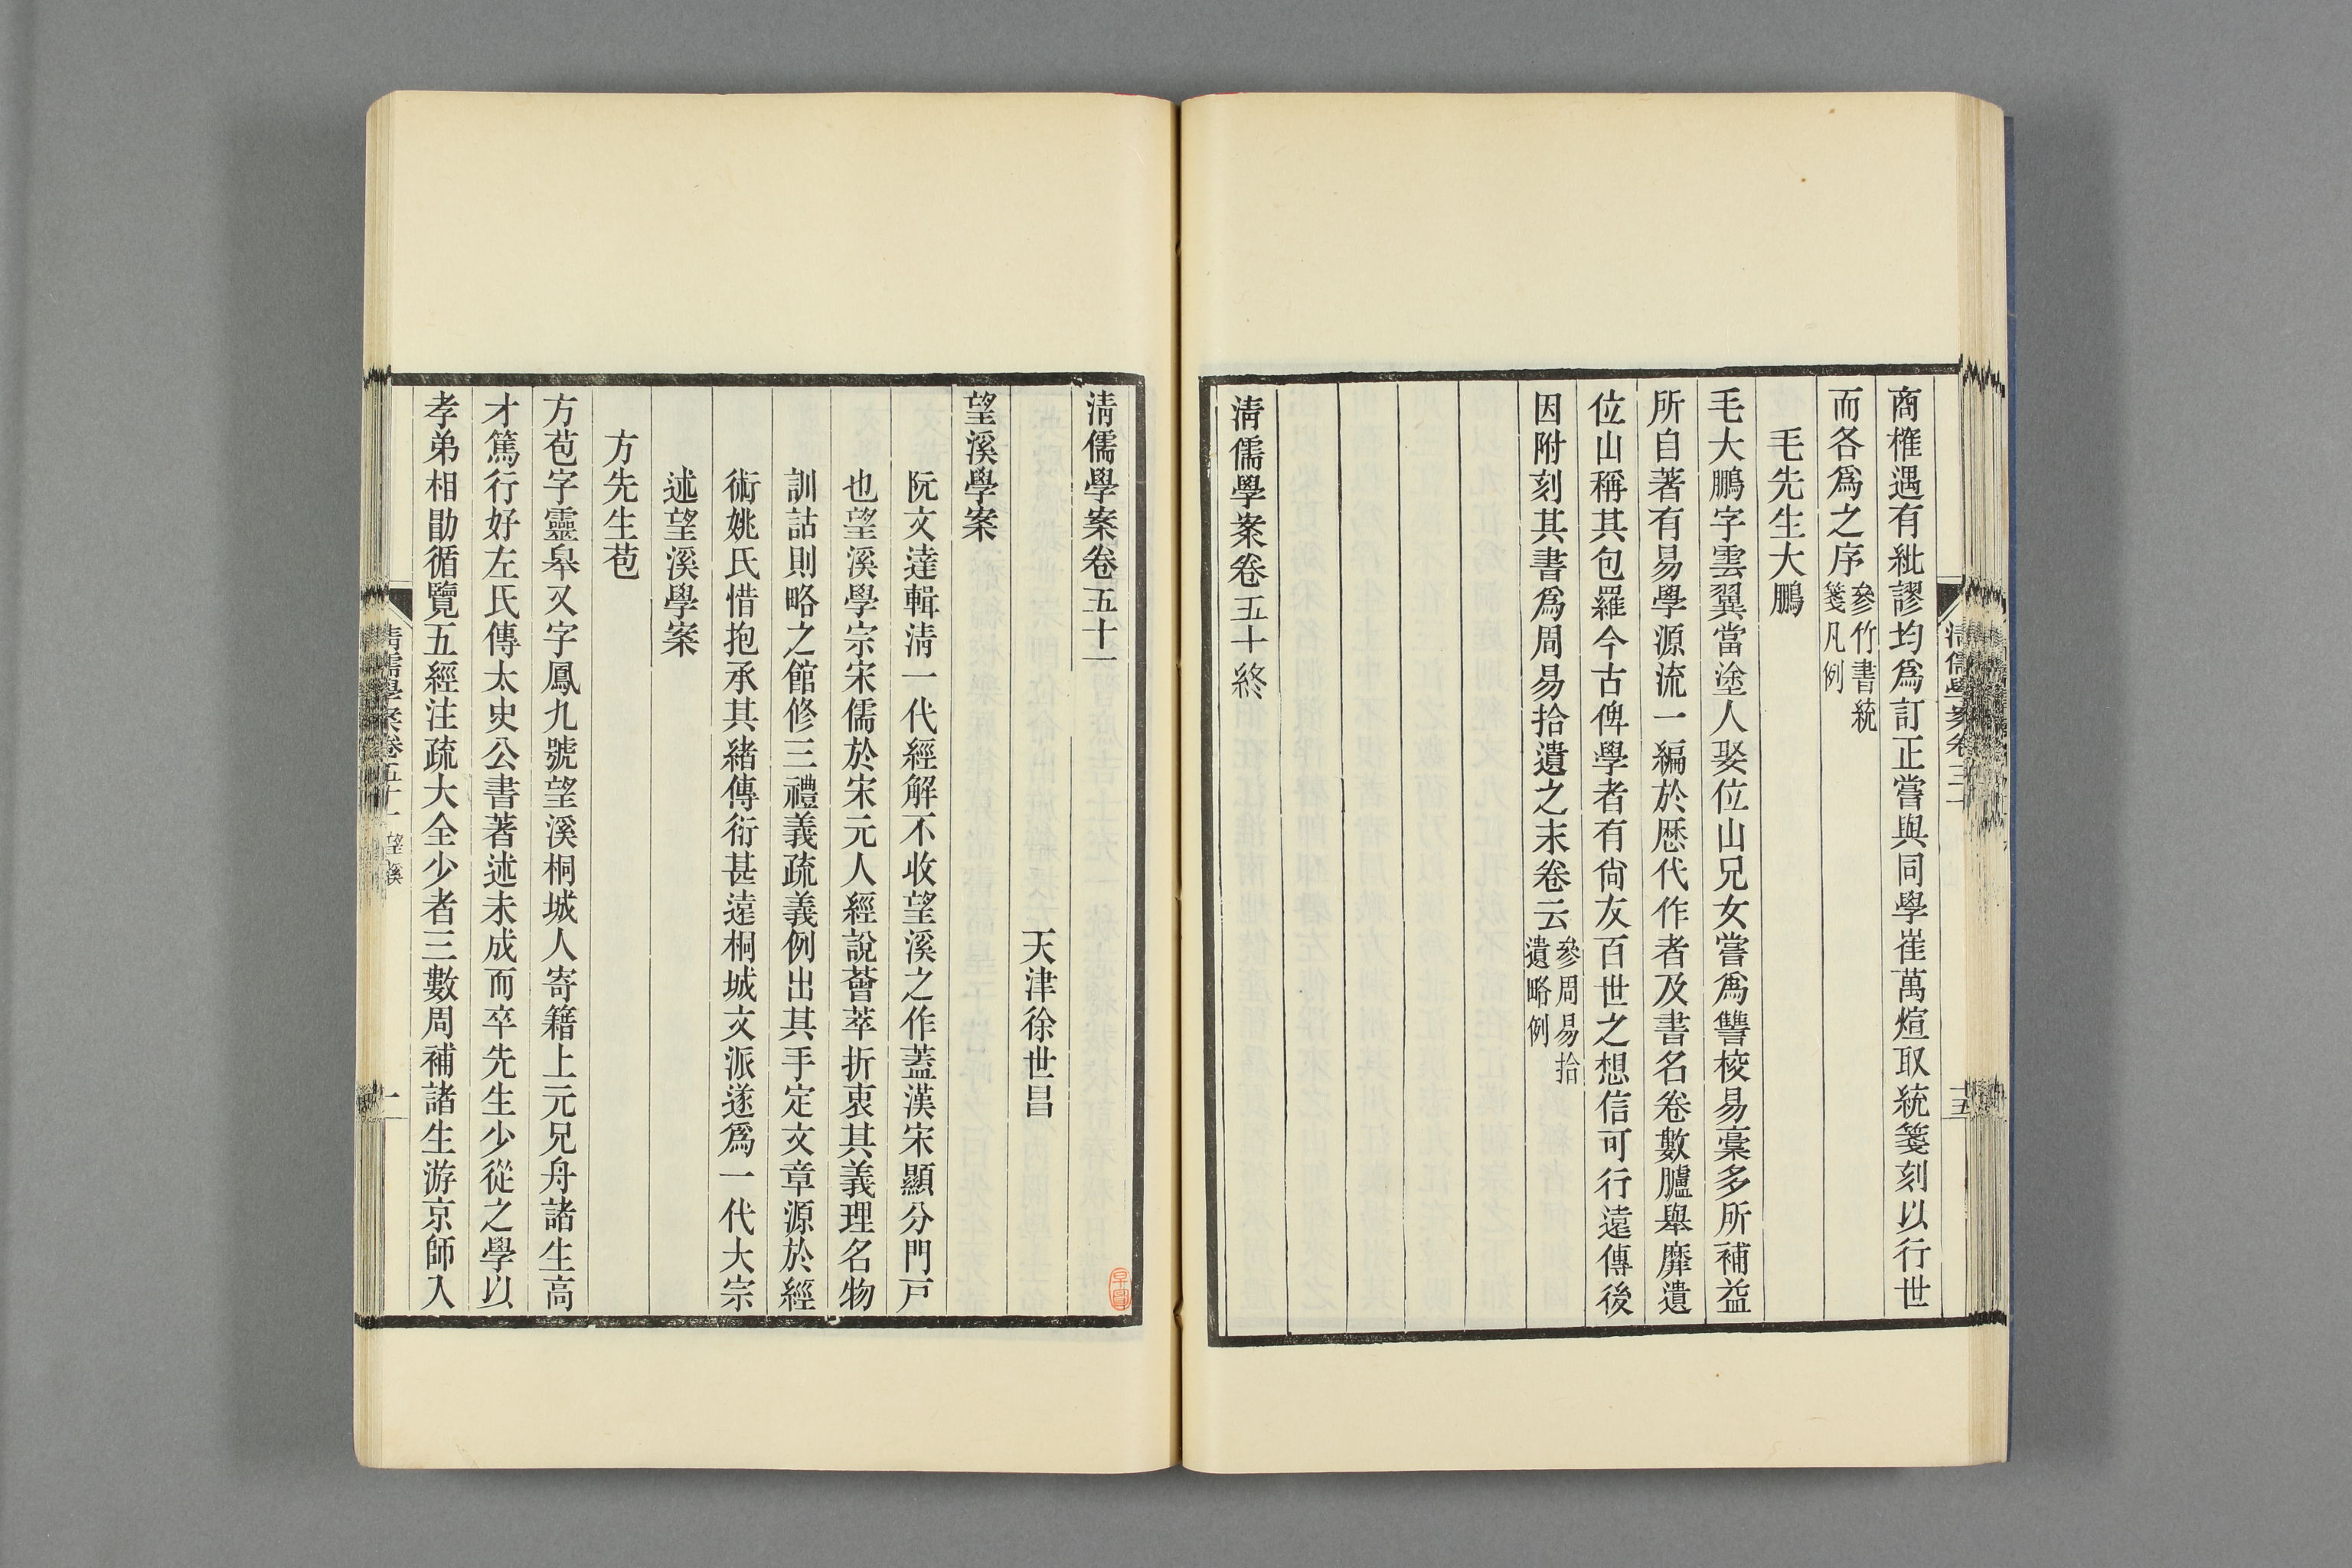 商榷遇有紕謬均爲訂正嘗與同學崔萬烜取統箋刻以行世
而各爲之序參竹書統箋凡例
毛先生大鵬
毛大鵬字雲翼當塗人娶位山兄女嘗爲讐校易稾多所補益
所自著有易學源流一編於歷代作者及書名卷數臚舉靡遺
位山稱其包羅今古俾學者有尙友百世之想信可行遠傳後
因附刻其書爲周易拾遺之末卷云參周易拾遺略例
淸儒學案卷五十終
淸儒學案卷五十一
天津徐世昌
望溪學案
阮文達輯淸一代經解不收望溪之作蓋漢宋顯分門戸
也望溪學宗宋儒於宋元人經說薈萃折衷其義理名物
訓詁則略之館修三禮義疏義例出其手定文章源於經
術姚氏惜抱承其緒傳衍甚遠桐城文派遂爲一代大宗
述望溪學案
方先生苞
方苞字靈皋又字鳳九號望溪桐城人寄籍上元兄舟諸生高
才篤行好左氏傳太史公書著述未成而卒先生少從之學以
孝弟相勖循覽五經注疏大全少者三數周補諸生游京師入
淸儒學案卷五十一 望溪
一